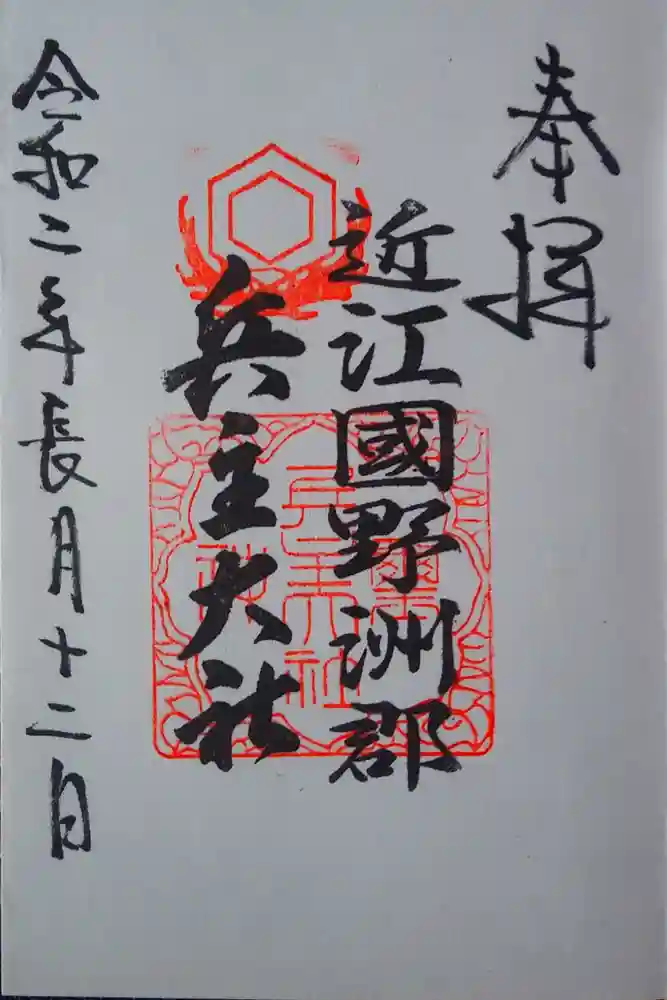 奉拝
近江國野洲郡
兵主大社
令和二年長月十二日
兵主大社